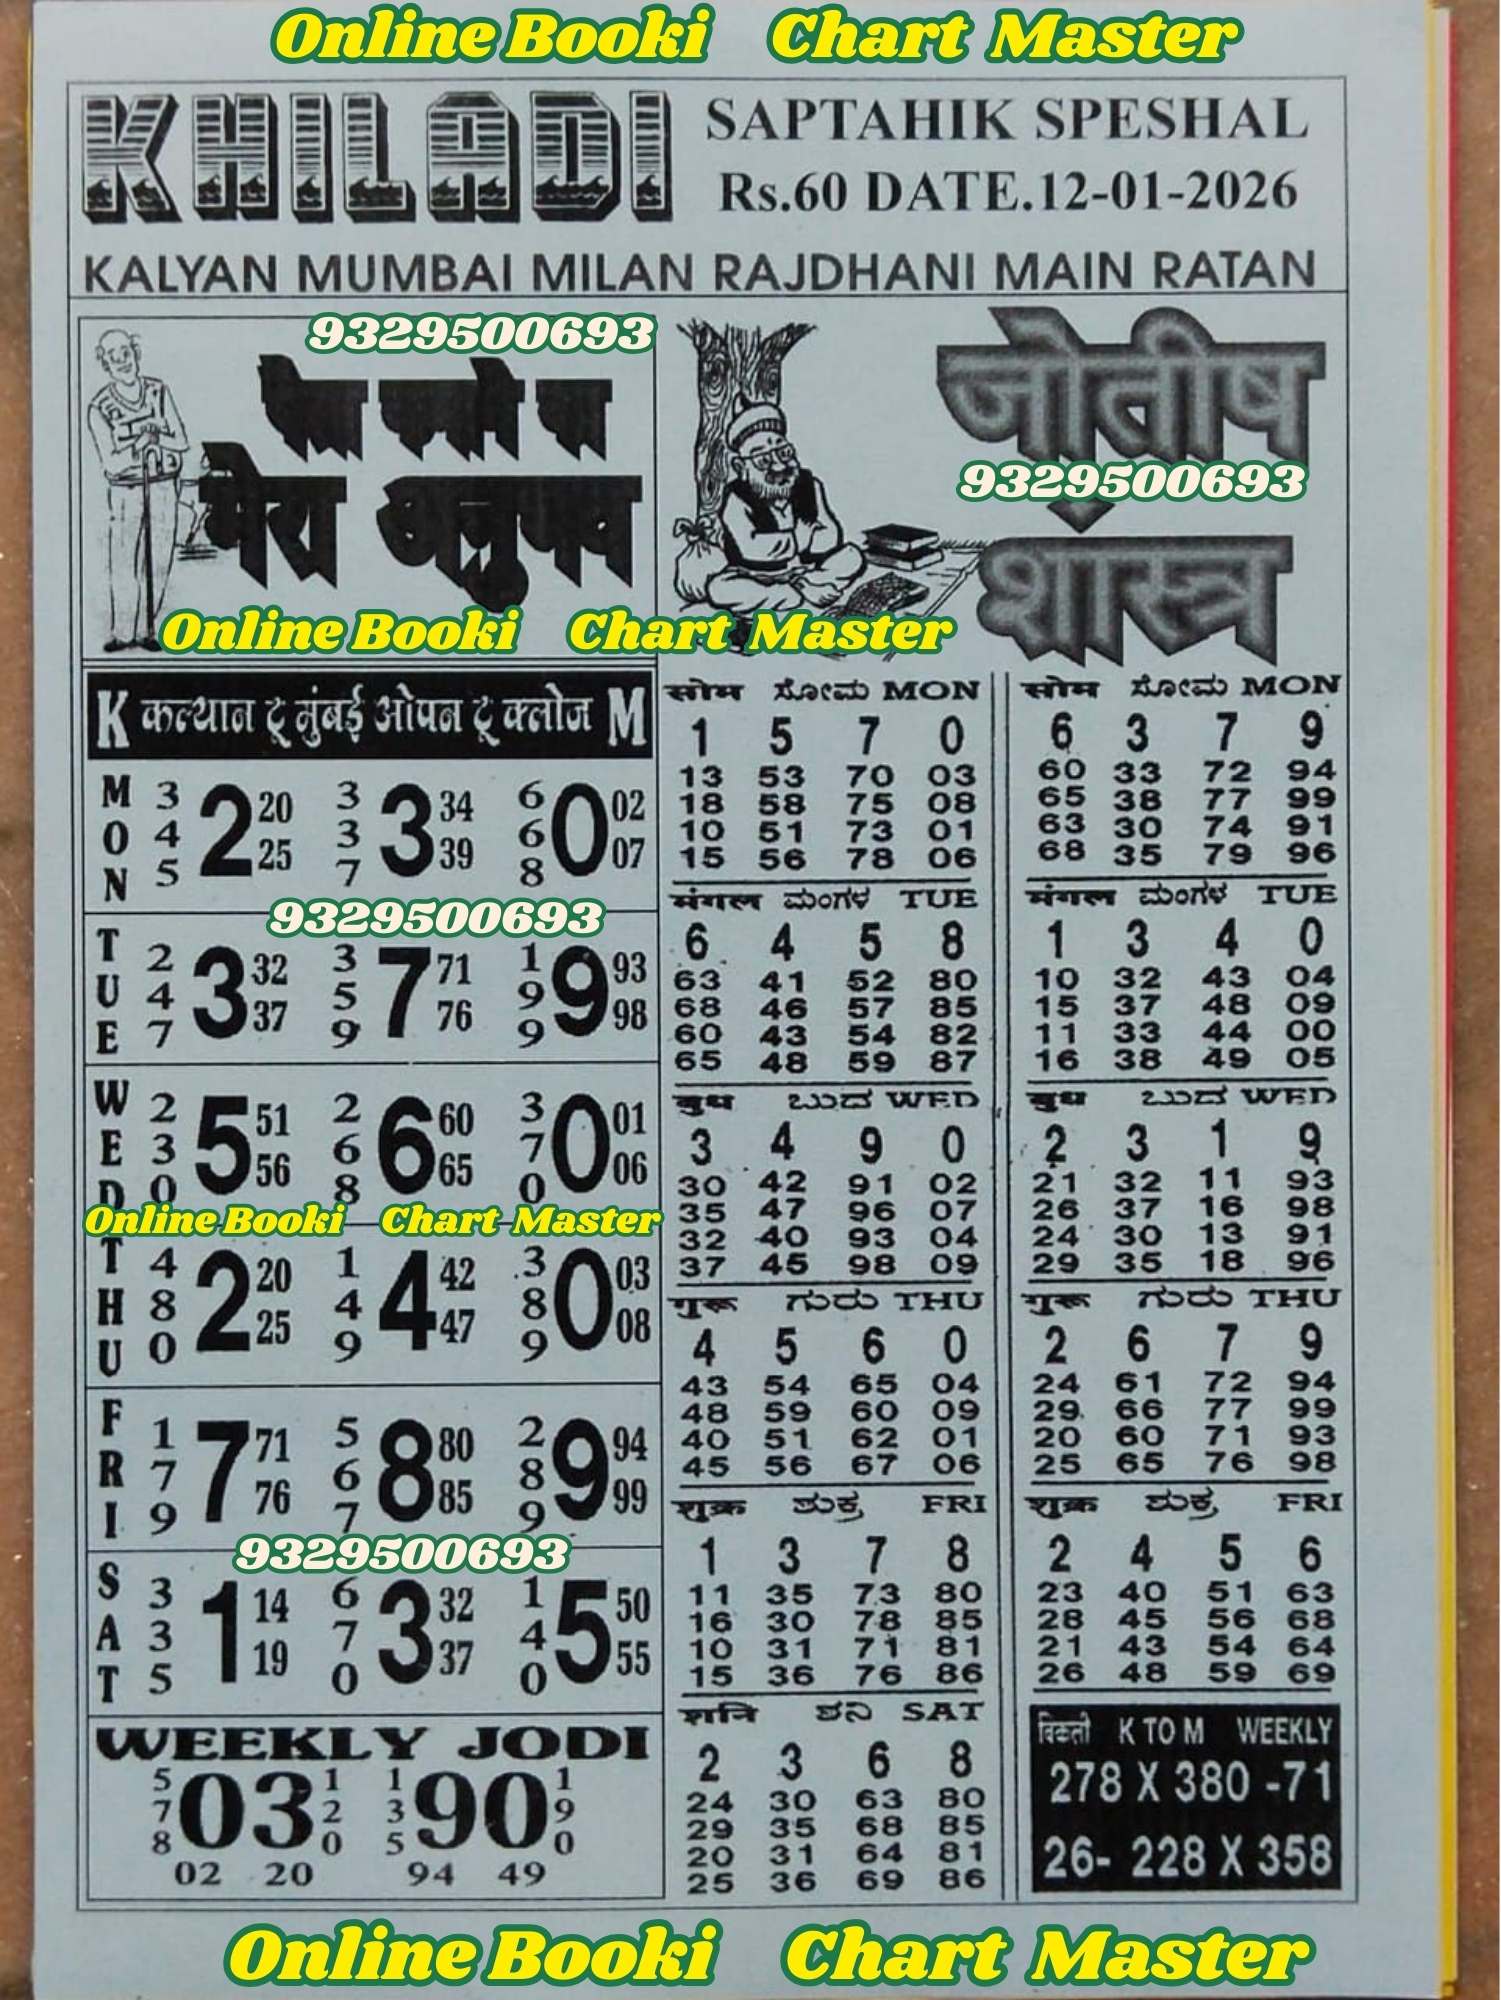 Online Booki Chart Master
KHILADI
SAPTAHIK SPESHAL
Rs.60 DATE.12-01-2026
KALYAN MUMBAI MILAN RAJDHANI MAIN RATAN
9329500693
मेरा अनुभव
जोतीष
9329500693
शास्त्र
Online Booki Chart Master
K कल्यान टू मुंबई ओपन टू क्लोज M
MON
345 2 20 25 337 3 34 39 668 0 02 07
9329500693
TUE
247 3 32 37 359 7 71 76 199 9 93 98
WED
230 5 51 56 268 6 60 65 370 0 01 06
Online Booki Chart Master
THU
480 2 20 25 149 4 42 47 389 0 03 08
FRI
179 7 71 76 567 8 80 85 289 9 94 99
9329500693
SAT
335 1 14 19 670 3 32 37 140 5 50 55
WEEKLY JODI
578 03 120 135 90 190
02 20 94 49
सोम ಸೋಮ MON
1 5 7 0
13 53 70 03
18 58 75 08
10 51 73 01
15 56 78 06
मंगल ಮಂಗಳ TUE
6 4 5 8
63 41 52 80
68 46 57 85
60 43 54 82
65 48 59 87
बुध ಬುದ WED
3 4 9 0
30 42 91 02
35 47 96 07
32 40 93 04
37 45 98 09
गुरू ಗುರು THU
4 5 6 0
43 54 65 04
48 59 60 09
40 51 62 01
45 56 67 06
शुक्र ಶುಕ್ರ FRI
1 3 7 8
11 35 73 80
16 30 78 85
10 31 71 81
15 36 76 86
शनि ಶನಿ SAT
2 3 6 8
24 30 63 80
29 35 68 85
20 31 64 81
25 36 69 86
सोम ಸೋಮ MON
6 3 7 9
60 33 72 94
65 38 77 99
63 30 74 91
68 35 79 96
मंगल ಮಂಗಳ TUE
1 3 4 0
10 32 43 04
15 37 48 09
11 33 44 00
16 38 49 05
बुध ಬುದ WED
2 3 1 9
21 32 11 93
26 37 16 98
24 30 13 91
29 35 18 96
गुरू ಗುರು THU
2 6 7 9
24 61 72 94
29 66 77 99
20 60 71 93
25 65 76 98
शुक्र ಶುಕ್ರ FRI
2 4 5 6
23 40 51 63
28 45 56 68
21 43 54 64
26 48 59 69
K TO M WEEKLY
278 X 380 -71
26- 228 X 358
Online Booki Chart Master